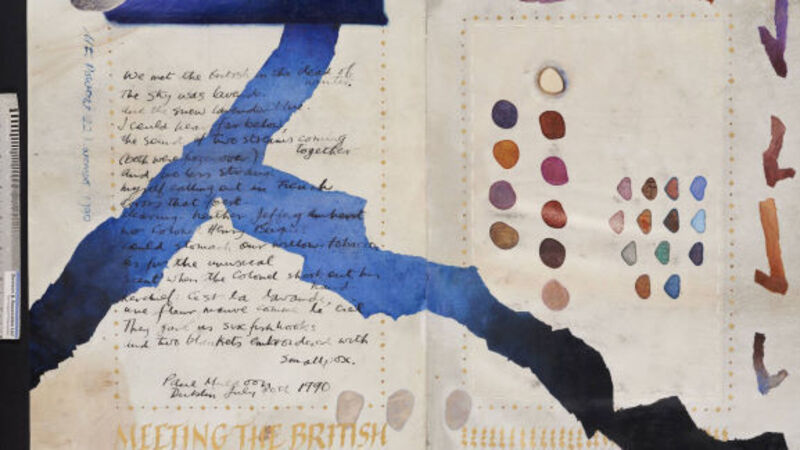 We met the British in the dead of
winter.
The sky was lavender
and the snow lavender-blue.
I could hear, far below,
the sound of two streams coming
together
(both were frozen over)
and no less strange
myself calling out in French
across that forest
clearing. Neither Jeffrey Amherst
nor Colonel Henry Bouquet
could stomach our willow tobacco.
As for the unusual
scent when the Colonel shook out his
hand
kerchief: C'est la lavande,
une fleur mauve comme le ciel
They gave us six fishhooks
and two blankets embroidered with
smallpox.
Paul Muldoon
Dublin July 1990
MEETING THE BRITISH